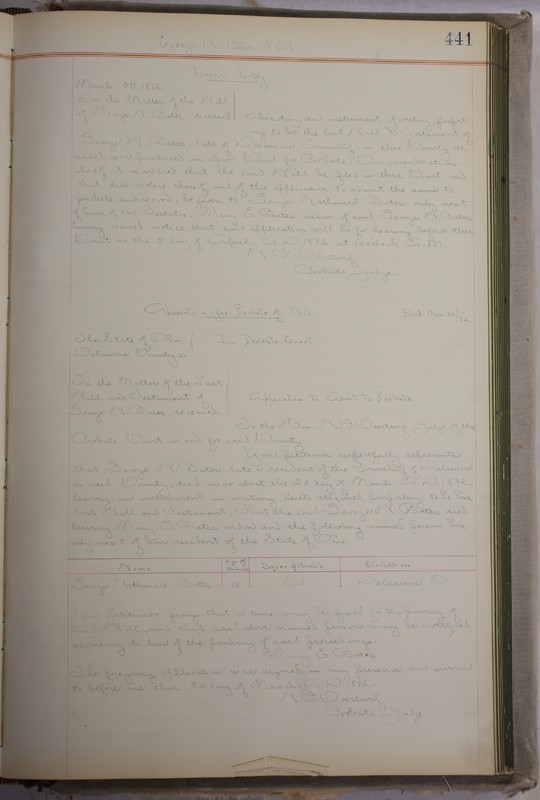 441
George N. Bates Will
March 30 1892
In the Matter of the Will
of George N. Bates, deceased This day an instrument of writing, purport-
ing to be the last Will & Testament of
George N. Bates, late of Delaware Township in this County de-
ceased, was produced in open Court for Probate. On consideration
whereof it is ordered that the said Will be filed in this Court and
that due notice thereof, and of the application to admit the same to
probate and record, be given to George Nathaniel Bates only next
of kin of the Testator. Mary E. Bates widow of said George N. Bates
notice that said application will be for hearing before this
Court on the 5 day of April A.D. 1892 at o'clock M.
Probate Judge.
Application for Probate of Will Filed Mar. 30/92
The State of Ohio In Probate Court
Delaware County, ss
In the Matter of the Last
Will and Testament of Application to Admit to Probate
George N. Bates, deceased
To the Hon. Judge of the
Probate Court in and for said County:
Your petitioner respectfully represents
that George N. Bates late a resident of the Township of Delaware
in said County, died on or about the day of March A.D. 1892.
leaving an instrument in writing, herewith produced, purporting to be his
last Will and Testament; That the said George N. Bates died
leaving Mary E. Bates widow and the following named person his
only next of kin resident of the State of Ohio
Name Age of Minors Degree of Kindred P.O. Address
George Nathaniel Bates Son Delaware O.
Your petitioner prays that a time may be fixed for the proving of
said Will and that said above named persons may be notified
according to law of the pendency of said proceedings.
Mary E. Bates
The foregoing application was signed in my presence and sworn
to before me, this 30 day of March, A.D. 1892.
Probate Judge